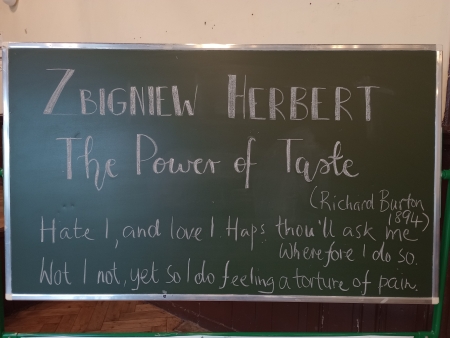 ZBIGNIEW HERBERT
The Power of Taste
(Richard Burton
1894)
Hate I, and love I. Haps thou'll ask me
wherefore I do so.
Wot I not, yet so I do feeling a torture of pain.